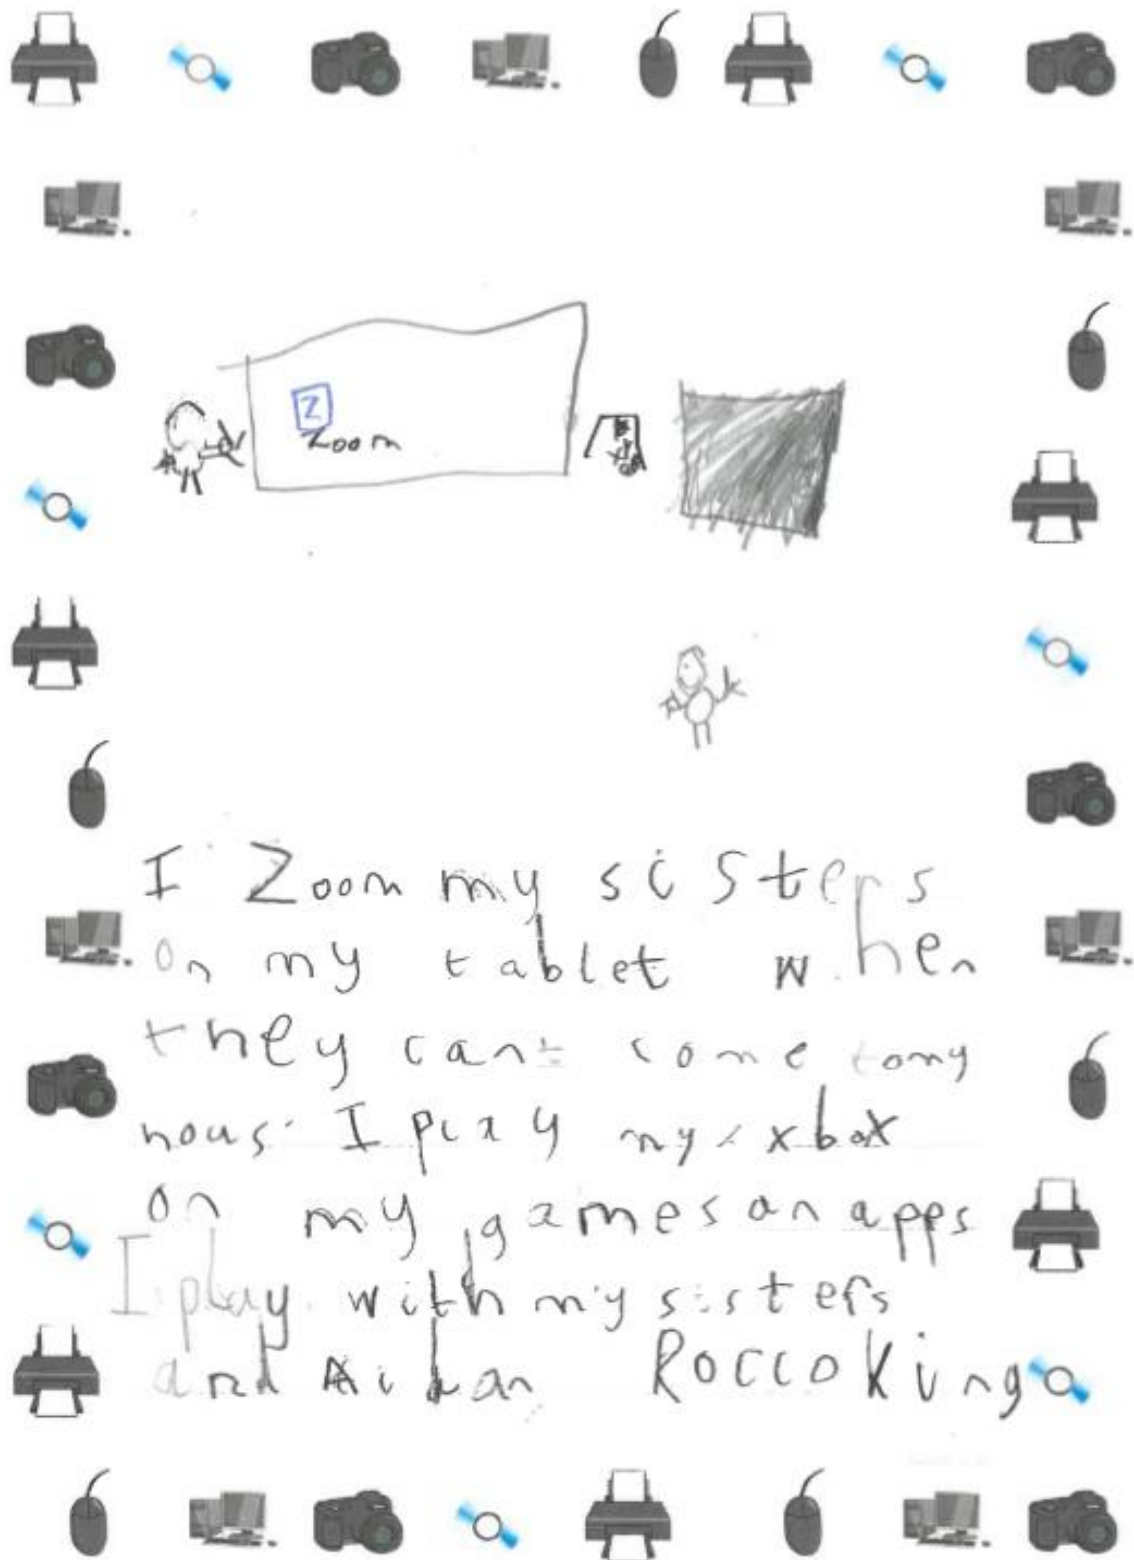 Z
Zoom
I Zoom my sisters
on my tablet when
they cant come tomy
hous I play my xbox
on my games an apps
I play with my sisters
and Aidan Rocco King